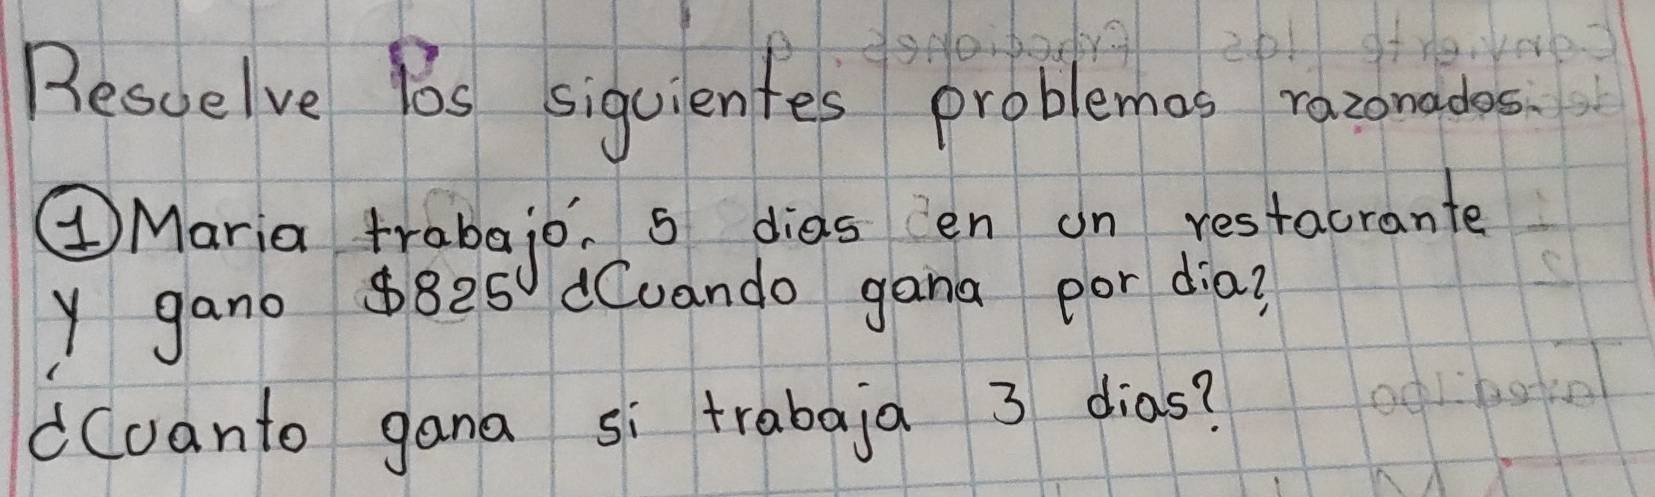 Resuelve los siguientes problemas razonados.
① Maria trabajó 5 dias en un restaurante
y gano $825 ¿Cuando gana por dia?
¿Cuanto gana si trabaja 3 dias?